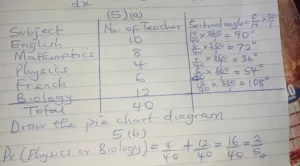 dx
(5)(a)
Subject No. of Teacher Sectorial angle = F/N × 360/1
English 10 10/40 × 360 = 90°
Mathematics 8 8/40 × 360 = 72°
Physics 4 4/40 × 360 = 36°
French 6 6/40 × 360 = 54°
Biology 12 12/40 × 360 = 108°
Total 40
Draw the pie chart diagram
5(b)
Pr(Physics or Biology) = 4/40 + 12/40 = 16/40 = 2/5